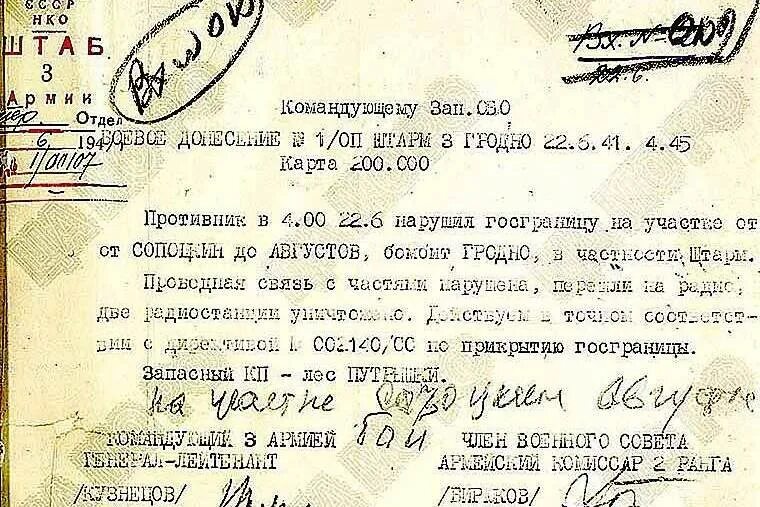 СССР
НКО
ШТАБ
3
Армии
Отдел
Вх. №
22.6.
Командующему Зап.ОВО
БОЕВОЕ ДОНЕСЕНИЕ № 1/ОП ШТАРМ 3 ГРОДНО 22.6.41. 4.45
Карта 200.000
Противник в 4.00 22.6 нарушил госграницу на участке от
от СОПОЦКИН до АВГУСТОВ, бомбит ГРОДНО, в частности Штарм.
Проводная связь с частями нарушена, перешли на радио,
две радиостанции уничтожено. Действуем в точном соответст-
вии с директивой № 002140/СС по прикрытию госграницы.
Запасный КП - лес ПУТРЫШКИ.
на участке Сопоцкин Август
КОМАНДУЮЩИЙ 3 АРМИЕЙ
ГЕНЕРАЛ-ЛЕЙТЕНАНТ
/КУЗНЕЦОВ/
ЧЛЕН ВОЕННОГО СОВЕТА
АРМЕЙСКИЙ КОМИССАР 2 РАНГА
/БИРЮКОВ/